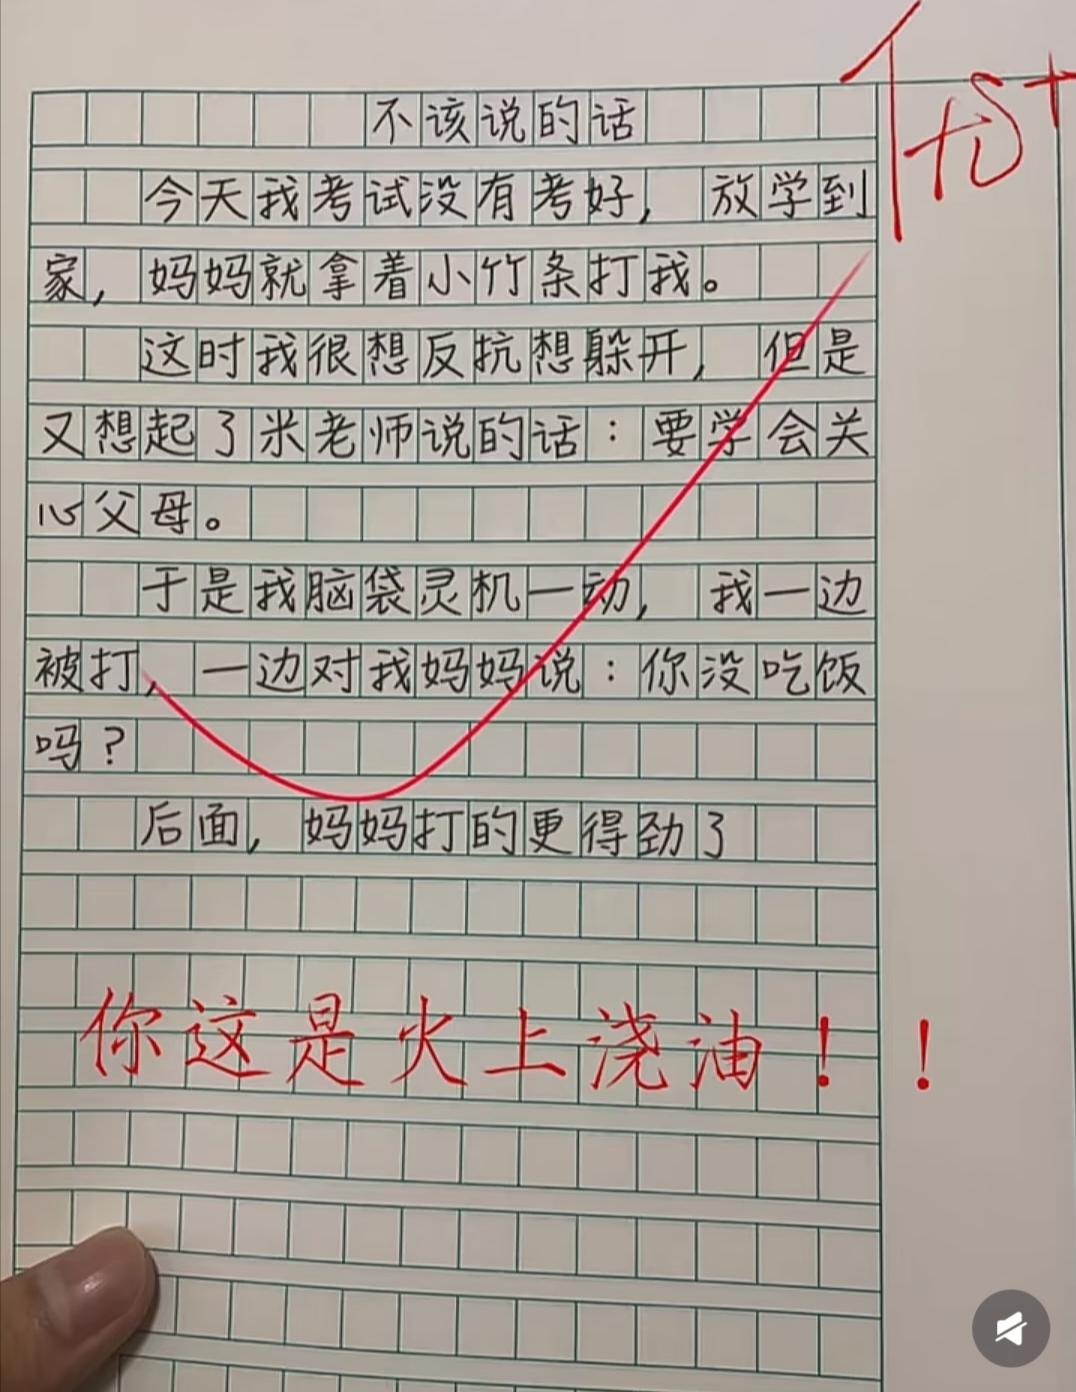 优+
不该说的话
今天我考试没有考好，放学到
家，妈妈就拿着小竹条打我。
这时我很想反抗想躲开，但是
又想起了米老师说的话：要学会关
心父母。
于是我脑袋灵机一动，我一边
被打，一边对我妈妈说：你没吃饭
吗？
后面，妈妈打的更得劲了
你这是火上浇油！！